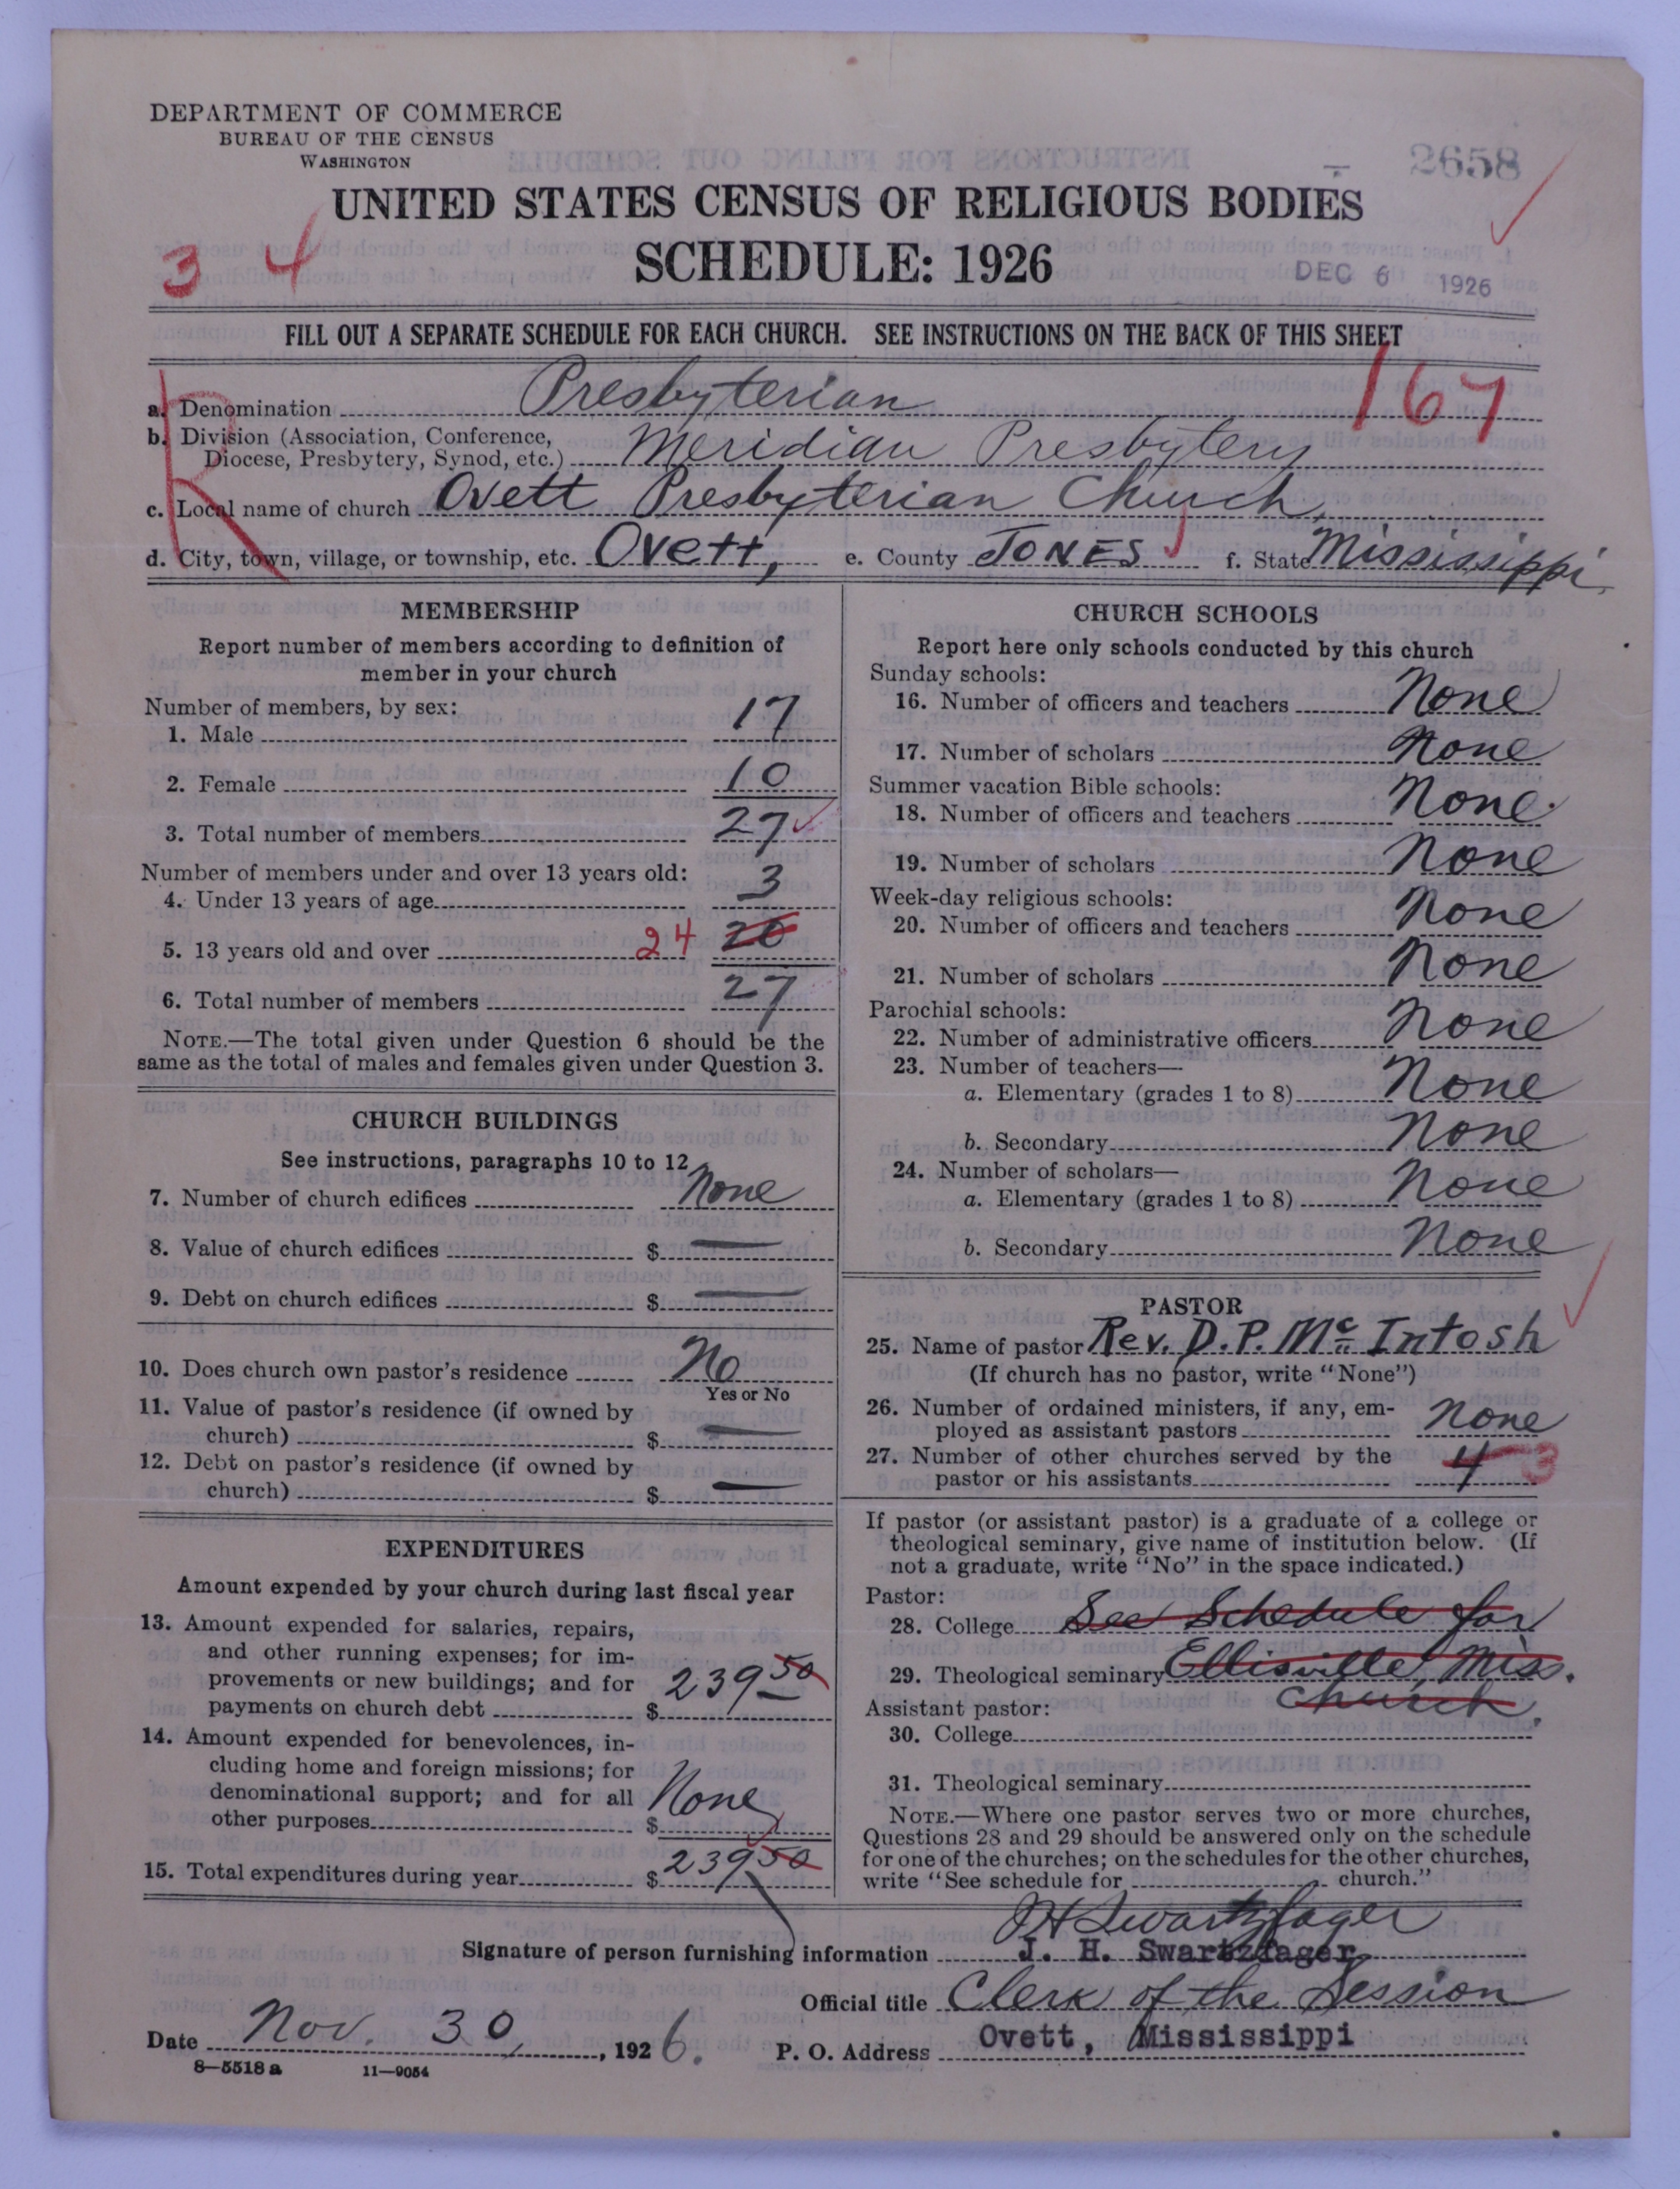 DEPARTMENT OF COMMERCE
BUREAU OF THE CENSUS
WASHINGTON
2658
UNITED STATES CENSUS OF RELIGIOUS BODIES
3 4
SCHEDULE: 1926
DEC 6 1926
FILL OUT A SEPARATE SCHEDULE FOR EACH CHURCH. SEE INSTRUCTIONS ON THE BACK OF THIS SHEET
167
R
a. Denomination Presbyterian
b. Division (Association, Conference,
Diocese, Presbytery, Synod, etc.) Meridian Presbytery
c. Local name of church Ovett Presbyterian Church,
d. City, town, village, or township, etc. Ovett, e. County JONES f. State Mississippi.
MEMBERSHIP
Report number of members according to definition of
member in your church
Number of members, by sex:
1. Male 17
2. Female 10
3. Total number of members 27
Number of members under and over 13 years old:
4. Under 13 years of age 3
5. 13 years old and over 24 20
6. Total number of members 27
NOTE.—The total given under Question 6 should be the
same as the total of males and females given under Question 3.
CHURCH BUILDINGS
See instructions, paragraphs 10 to 12
7. Number of church edifices None
8. Value of church edifices $ —
9. Debt on church edifices $ —
10. Does church own pastor's residence No
Yes or No
11. Value of pastor's residence (if owned by
church) $ —
12. Debt on pastor's residence (if owned by
church) $ —
EXPENDITURES
Amount expended by your church during last fiscal year
13. Amount expended for salaries, repairs,
and other running expenses; for im-
provements or new buildings; and for
payments on church debt $ 239 50
14. Amount expended for benevolences, in-
cluding home and foreign missions; for
denominational support; and for all
other purposes $ None
15. Total expenditures during year $ 239 50
CHURCH SCHOOLS
Report here only schools conducted by this church
Sunday schools:
16. Number of officers and teachers None
17. Number of scholars None
Summer vacation Bible schools:
18. Number of officers and teachers None.
19. Number of scholars None
Week-day religious schools:
20. Number of officers and teachers None
21. Number of scholars None
Parochial schools:
22. Number of administrative officers None
23. Number of teachers—
a. Elementary (grades 1 to 8) None
b. Secondary None
24. Number of scholars—
a. Elementary (grades 1 to 8) None
b. Secondary None
PASTOR
25. Name of pastor Rev. D.P. Mc Intosh
(If church has no pastor, write "None")
26. Number of ordained ministers, if any, em-
ployed as assistant pastors None
27. Number of other churches served by the
pastor or his assistants 4 3
If pastor (or assistant pastor) is a graduate of a college or
theological seminary, give name of institution below. (If
not a graduate, write "No" in the space indicated.)
Pastor:
28. College See Schedule for
29. Theological seminary Ellisville Miss.
Church.
Assistant pastor:
30. College
31. Theological seminary
NOTE.—Where one pastor serves two or more churches,
Questions 28 and 29 should be answered only on the schedule
for one of the churches; on the schedules for the other churches,
write "See schedule for church."
JH Swartzfager
Signature of person furnishing information J. H. Swartzfager
Official title Clerk of the Session
Date Nov. 30, 1926. P. O. Address Ovett, Mississippi
8—5518 a 11—9054